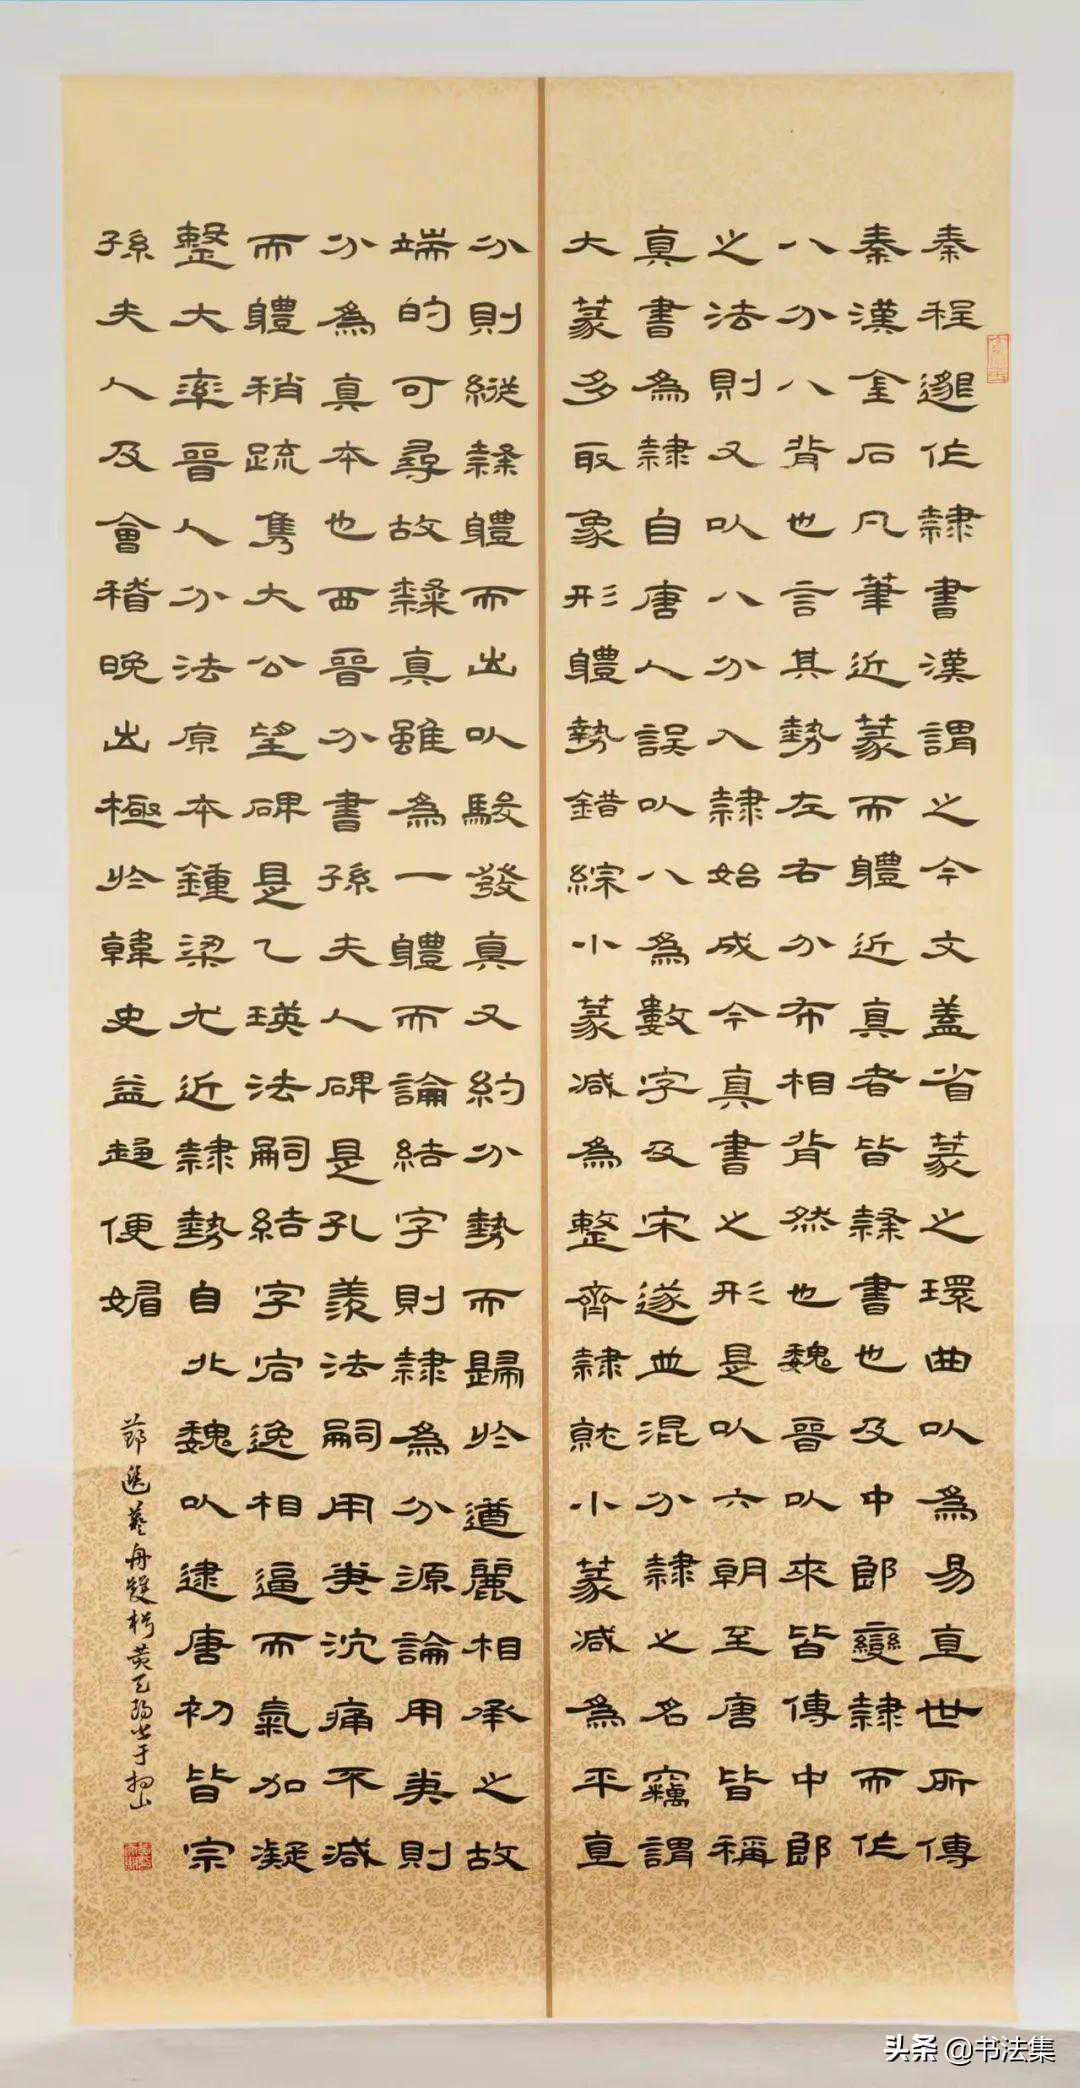 秦程邈作隸書漢謂之今文蓋省篆之環曲以為易直世所傳
秦漢金石凡筆近篆而體近真者皆隸書也及中郎變隸而作
八分八背也言其勢左右分布相背然也魏晉以來皆傳中郎
之法則又以八分入隸始成今真書之形是以六朝至唐皆稱
真書為隸自唐人誤以八為數字及宋遂並混分隸之名竊謂
大篆多取象形體勢錯綜小篆減為整齊隸就小篆減為平直
分則縱隸體而出以駿發真又約分勢而歸於遒麗相承之故
端的可尋故隸真雖為一體而論結字則隸為分源論用筆則
分為真本也西晉分書孫夫人碑是孔羨法嗣用筆沈痛不減
而體稍疏雋大公望碑是乙瑛法嗣結字宕逸相逼而氣加凝
整大率晉人分法原本鍾梁尤近隸勢自北魏以逮唐初皆宗
孫夫人及會稽晚出極於韓史益趨便媚
節選藝舟雙楫黃天
头条 @书法集